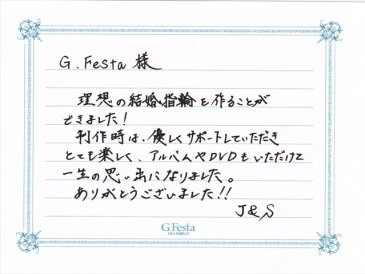 G.Festa 様
理想の結婚指輪を作ることが
できました!
制作時は、優しくサポートしていただき
とても楽しく、アルバムやDVDもいただけて
一生の思い出になりました。
ありがとうございました!!
J&S
G.Festa